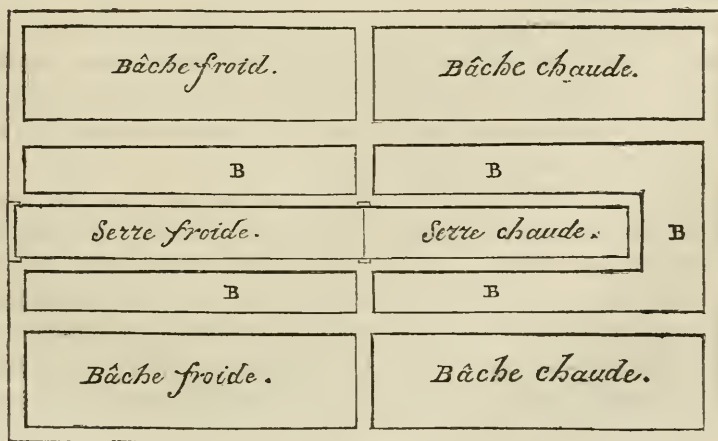 Bâche froid. Bâche chaude.
B B
Serre froide. Serre chaude. B
B B
Bâche froide. Bâche chaude.